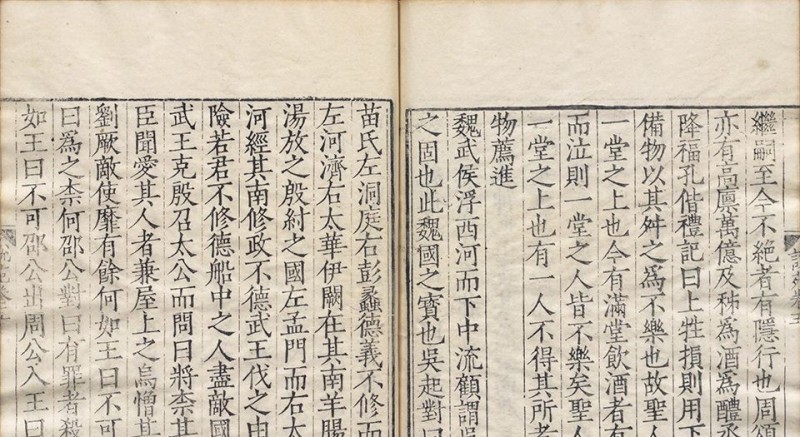 繼嗣至今不絕者有隱行也周頌
亦有高廩萬億及秭為酒為醴烝
降福孔偕禮記曰上牲損則用下
備物以其舛之為不樂也故聖人
一堂之上也今有滿堂飲酒者有
而泣則一堂之人皆不樂矣聖人
一堂之上也有一人不得其所者
物薦進
魏武侯浮西河而下中流顧謂吳
之固也此魏國之寶也吳起對曰
苗氏左洞庭右彭蠡德義不修而
左河濟右太華伊闕在其南羊腸
湯放之殷紂之國左孟門而右太
河經其南修政不德武王伐之由
險若君不修德船中之人盡敵國
武王克殷召太公而問曰將柰其
臣聞愛其人者兼屋上之烏憎其
劉厥敵使靡有餘何如王曰不可
曰為之柰何邵公對曰有罪者殺
如王曰不可邵公出周公入王曰